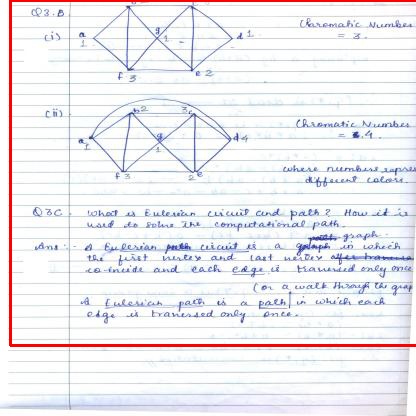 Q3.B
(i)
a 1
g 1
d 1
f 3
e 2
Chromatic Number
= 3.
(ii)
b 2
3 c
a 1
g 1
d 4
f 3
2 e
Chromatic Number
= 4.
where numbers repres
different colors.
Q3C. What is Eulerian circuit and path? How it is
used to solve the computational path.
Ans:- A Eulerian circuit is a graph in which
the first vertex and last vertex
co-inside and each edge is traversed only once
(or a walk through the grap
A Eulerian path is a path in which each
edge is traversed only once.